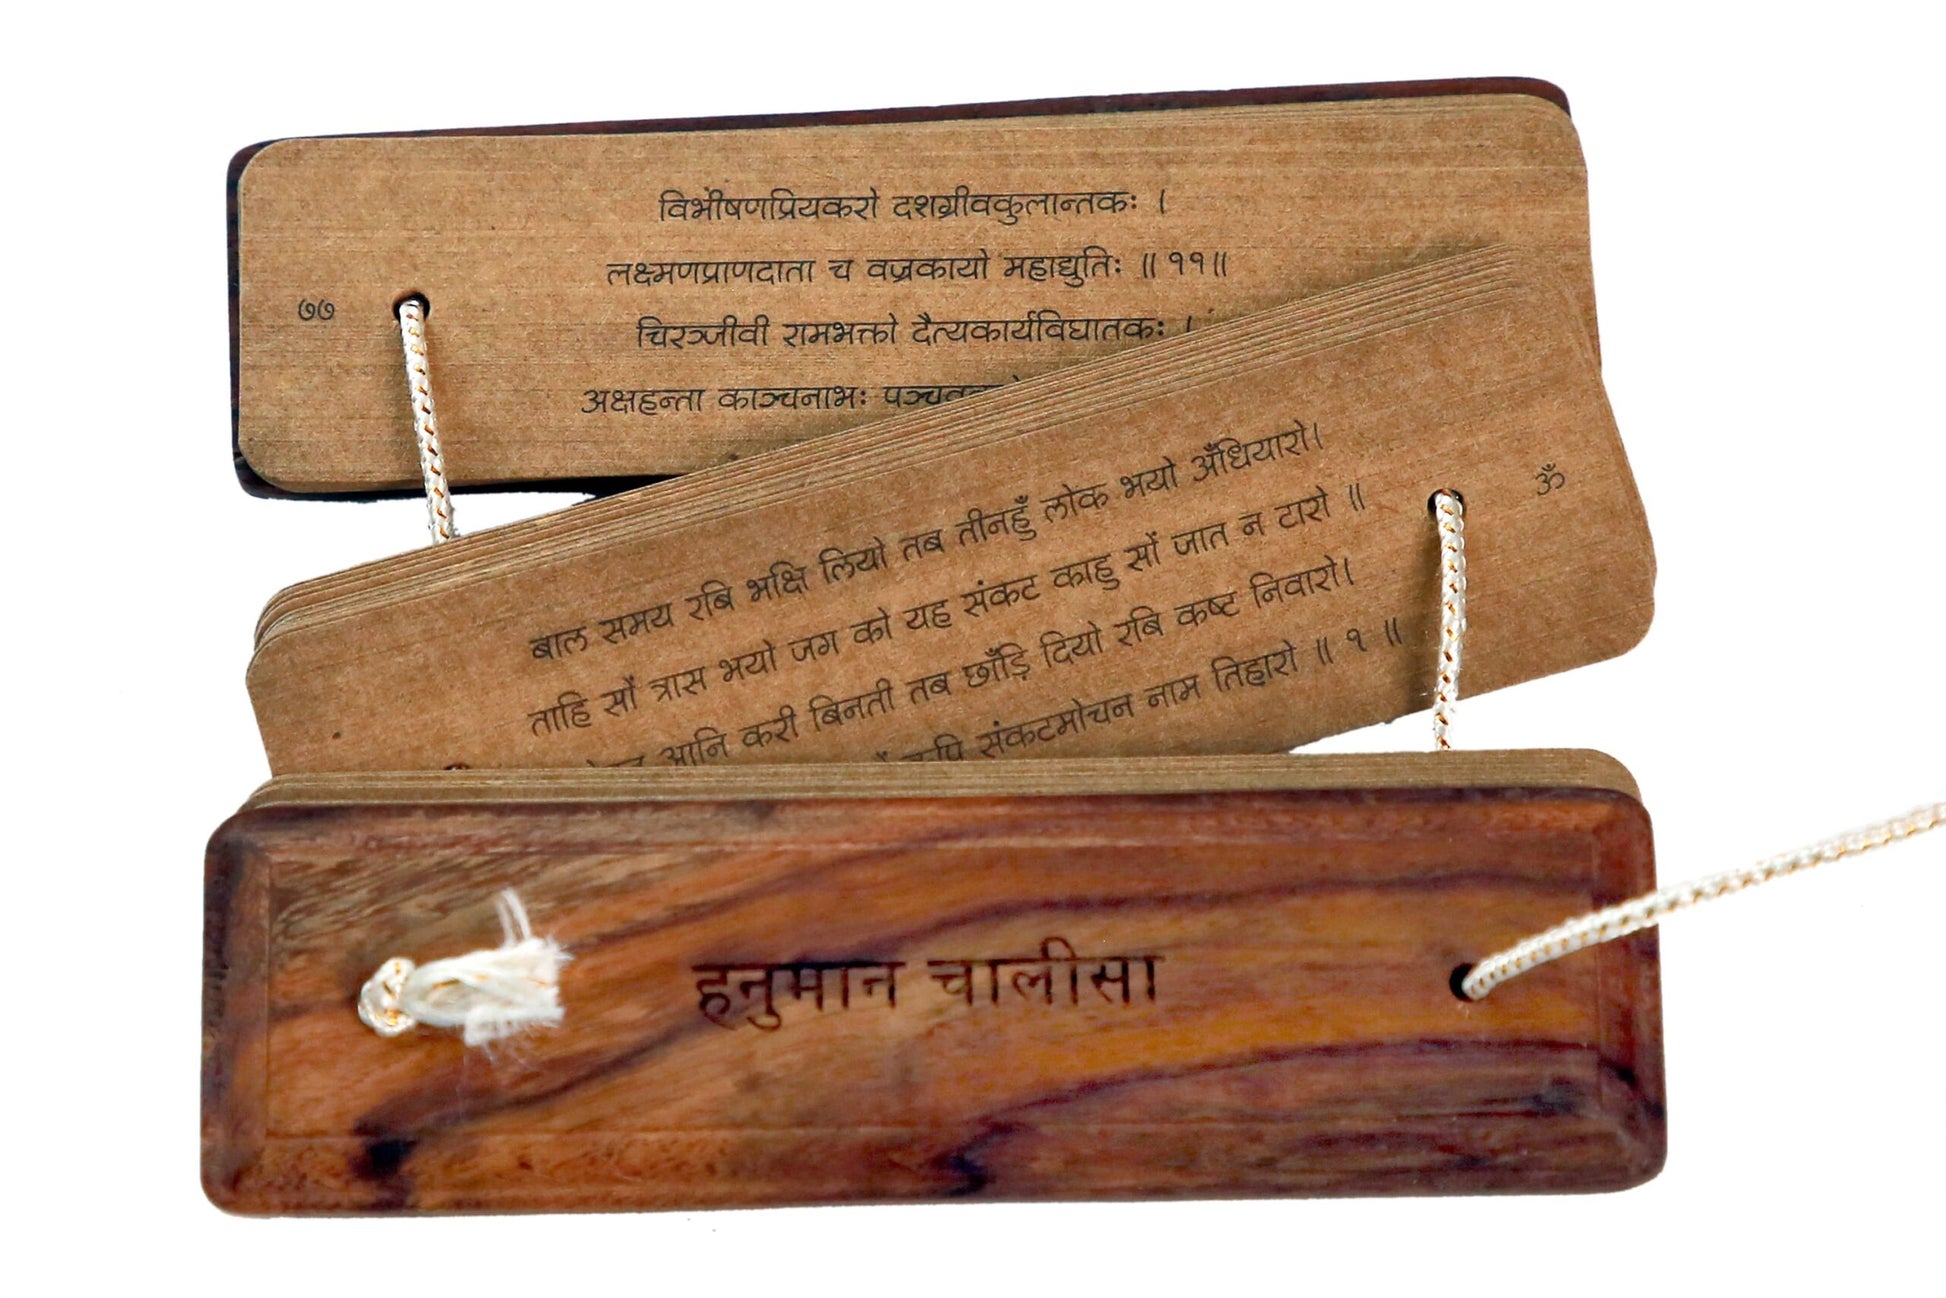 विभीषणप्रियकरो दशग्रीवकुलान्तकः ।
लक्ष्मणप्राणदाता च वज्रकायो महाद्युतिः ॥ ११॥
७७
चिरञ्जीवी रामभक्तो दैत्यकार्यविघातकः ।
अक्षहन्ता काञ्चनाभः
बाल समय रबि भक्षि लियो तब तीनहुँ लोक भयो अँधियारो।
ॐ
ताहि सों त्रास भयो जग को यह संकट काहु सों जात न टारो ॥
आनि करी बिनती तब छाँड़ि दियो रबि कष्ट निवारो।
संकटमोचन नाम तिहारो ॥ १ ॥
हनुमान चालीसा